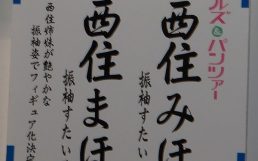 ルズ&パンツァー
西住みほ
振袖すたい
西住まほ
振袖すたい
西住姉妹が艶やかな
振袖姿でフィギュア化決定